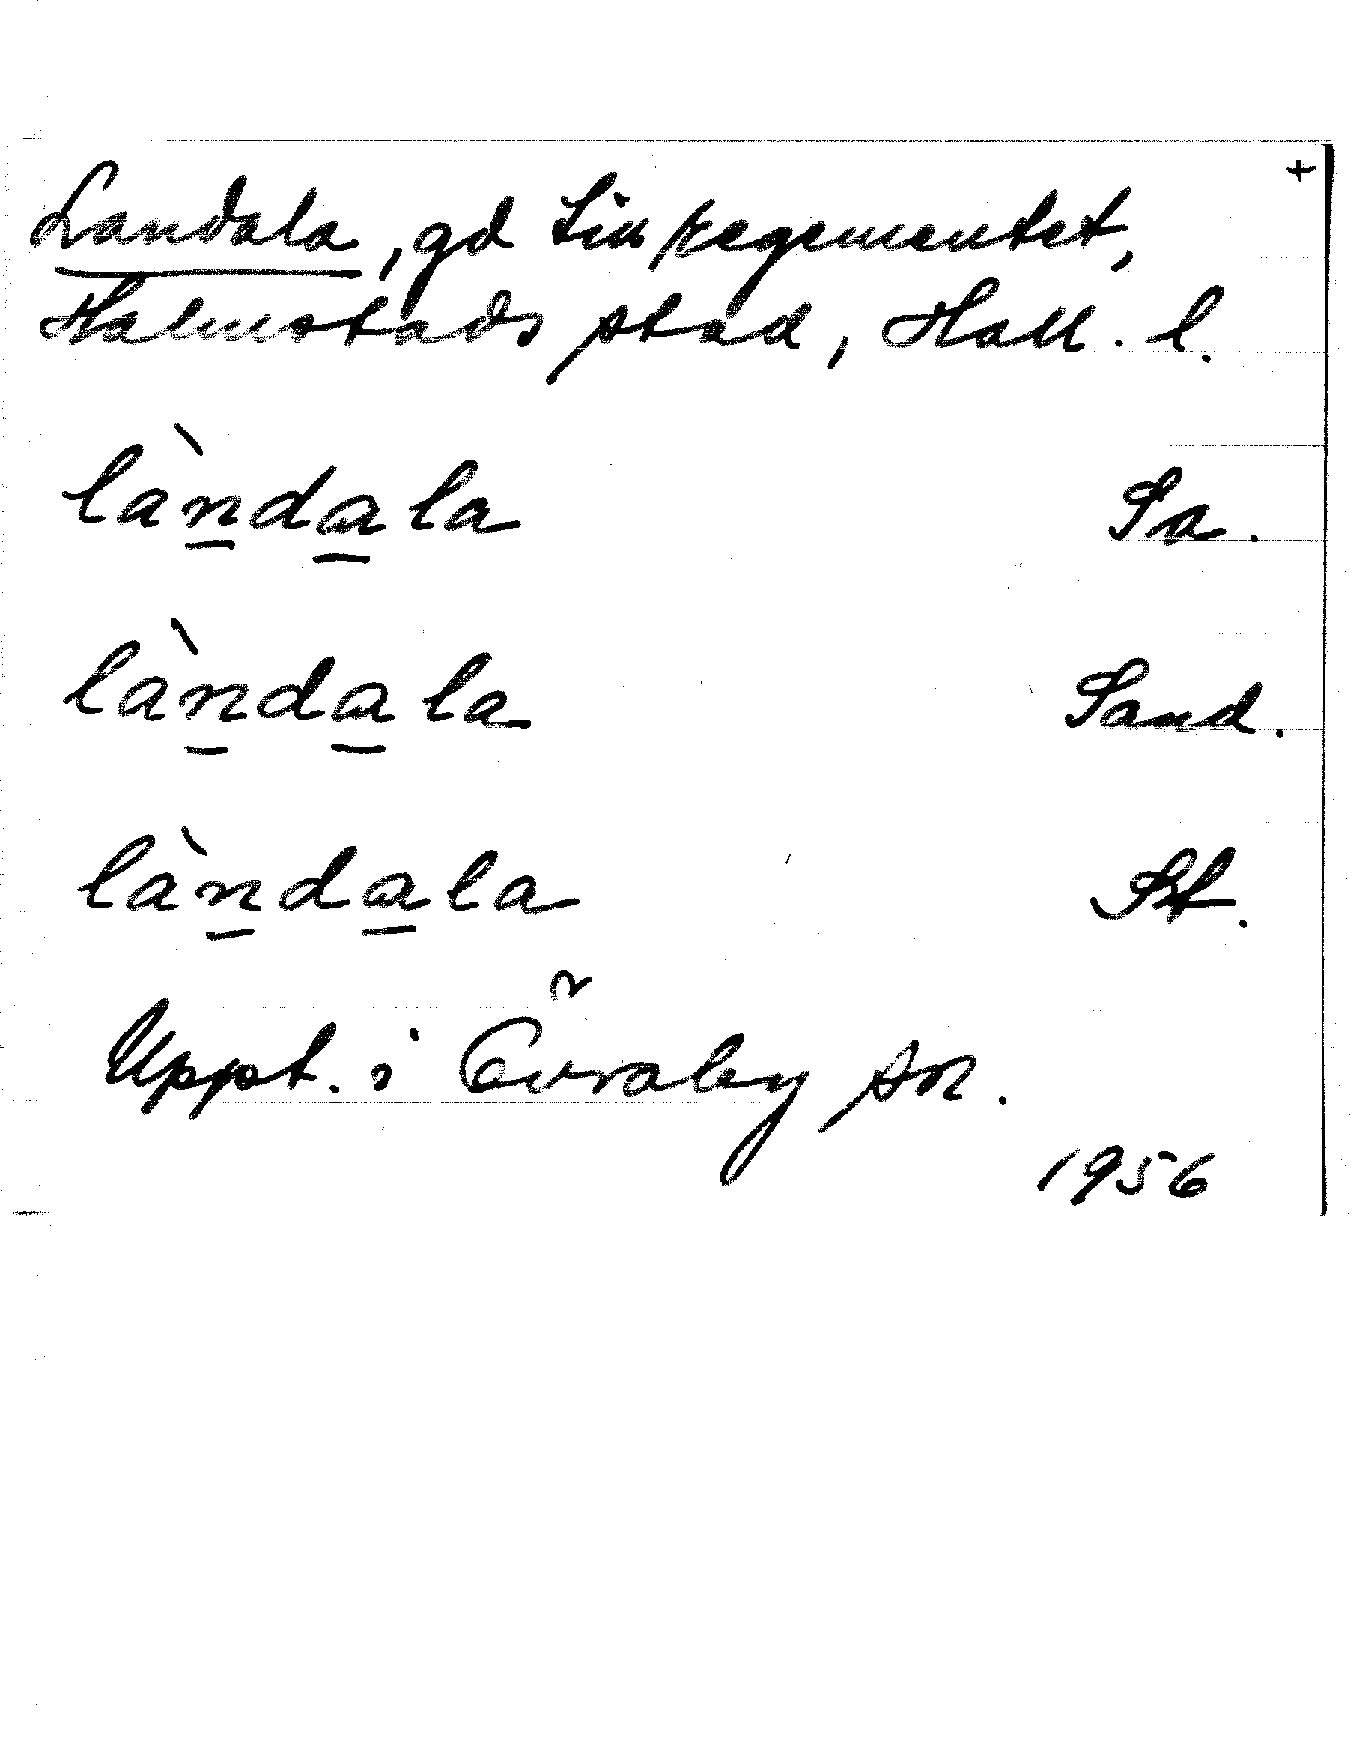 +
Landala, gd Till Regementet,
Halmstads stad, Hall. l.
làndala Sa.
làndala Sand.
làndala St.
Uppt. i Övraby sn.
1956